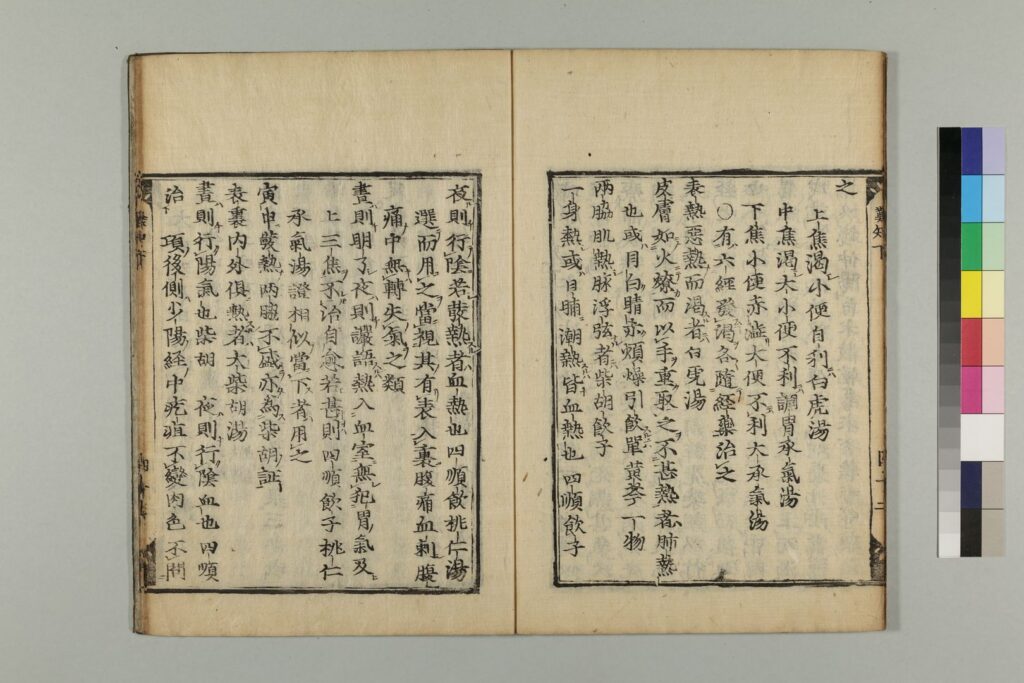 之
上焦渴小便自利白虎湯
中焦渴大小便不利調胃承氣湯
下焦小便赤澁大便不利大承氣湯
○有六經發渴各隨經藥治之
表熱惡熱而渴者白虎湯
皮膚如火燎而以手重取之不甚熱者肺熱
也或目白睛赤煩燥引飲單黃芩一物
兩脇肌熱脉浮弦者柴胡飲子
一身熱或日晡潮熱皆血熱也四順飲子
夜則行陰若發熱者血熱也四順飲桃仁湯
選而用之當視其有表入裏腹痛血刺腹
痛中無轉失氣之類
晝則明了夜則讝語熱入血室無犯胃氣及
上三焦不治自愈若甚則四順飲子桃仁
承氣湯證相似當下者用之
寅申發熱兩
不盛亦為柴胡証
表裏內外俱熱者大柴胡湯
晝則行陽氣也柴胡 夜則行陰血也四順
治 項後側少陽經中疙疸不變肉色不問
難知下